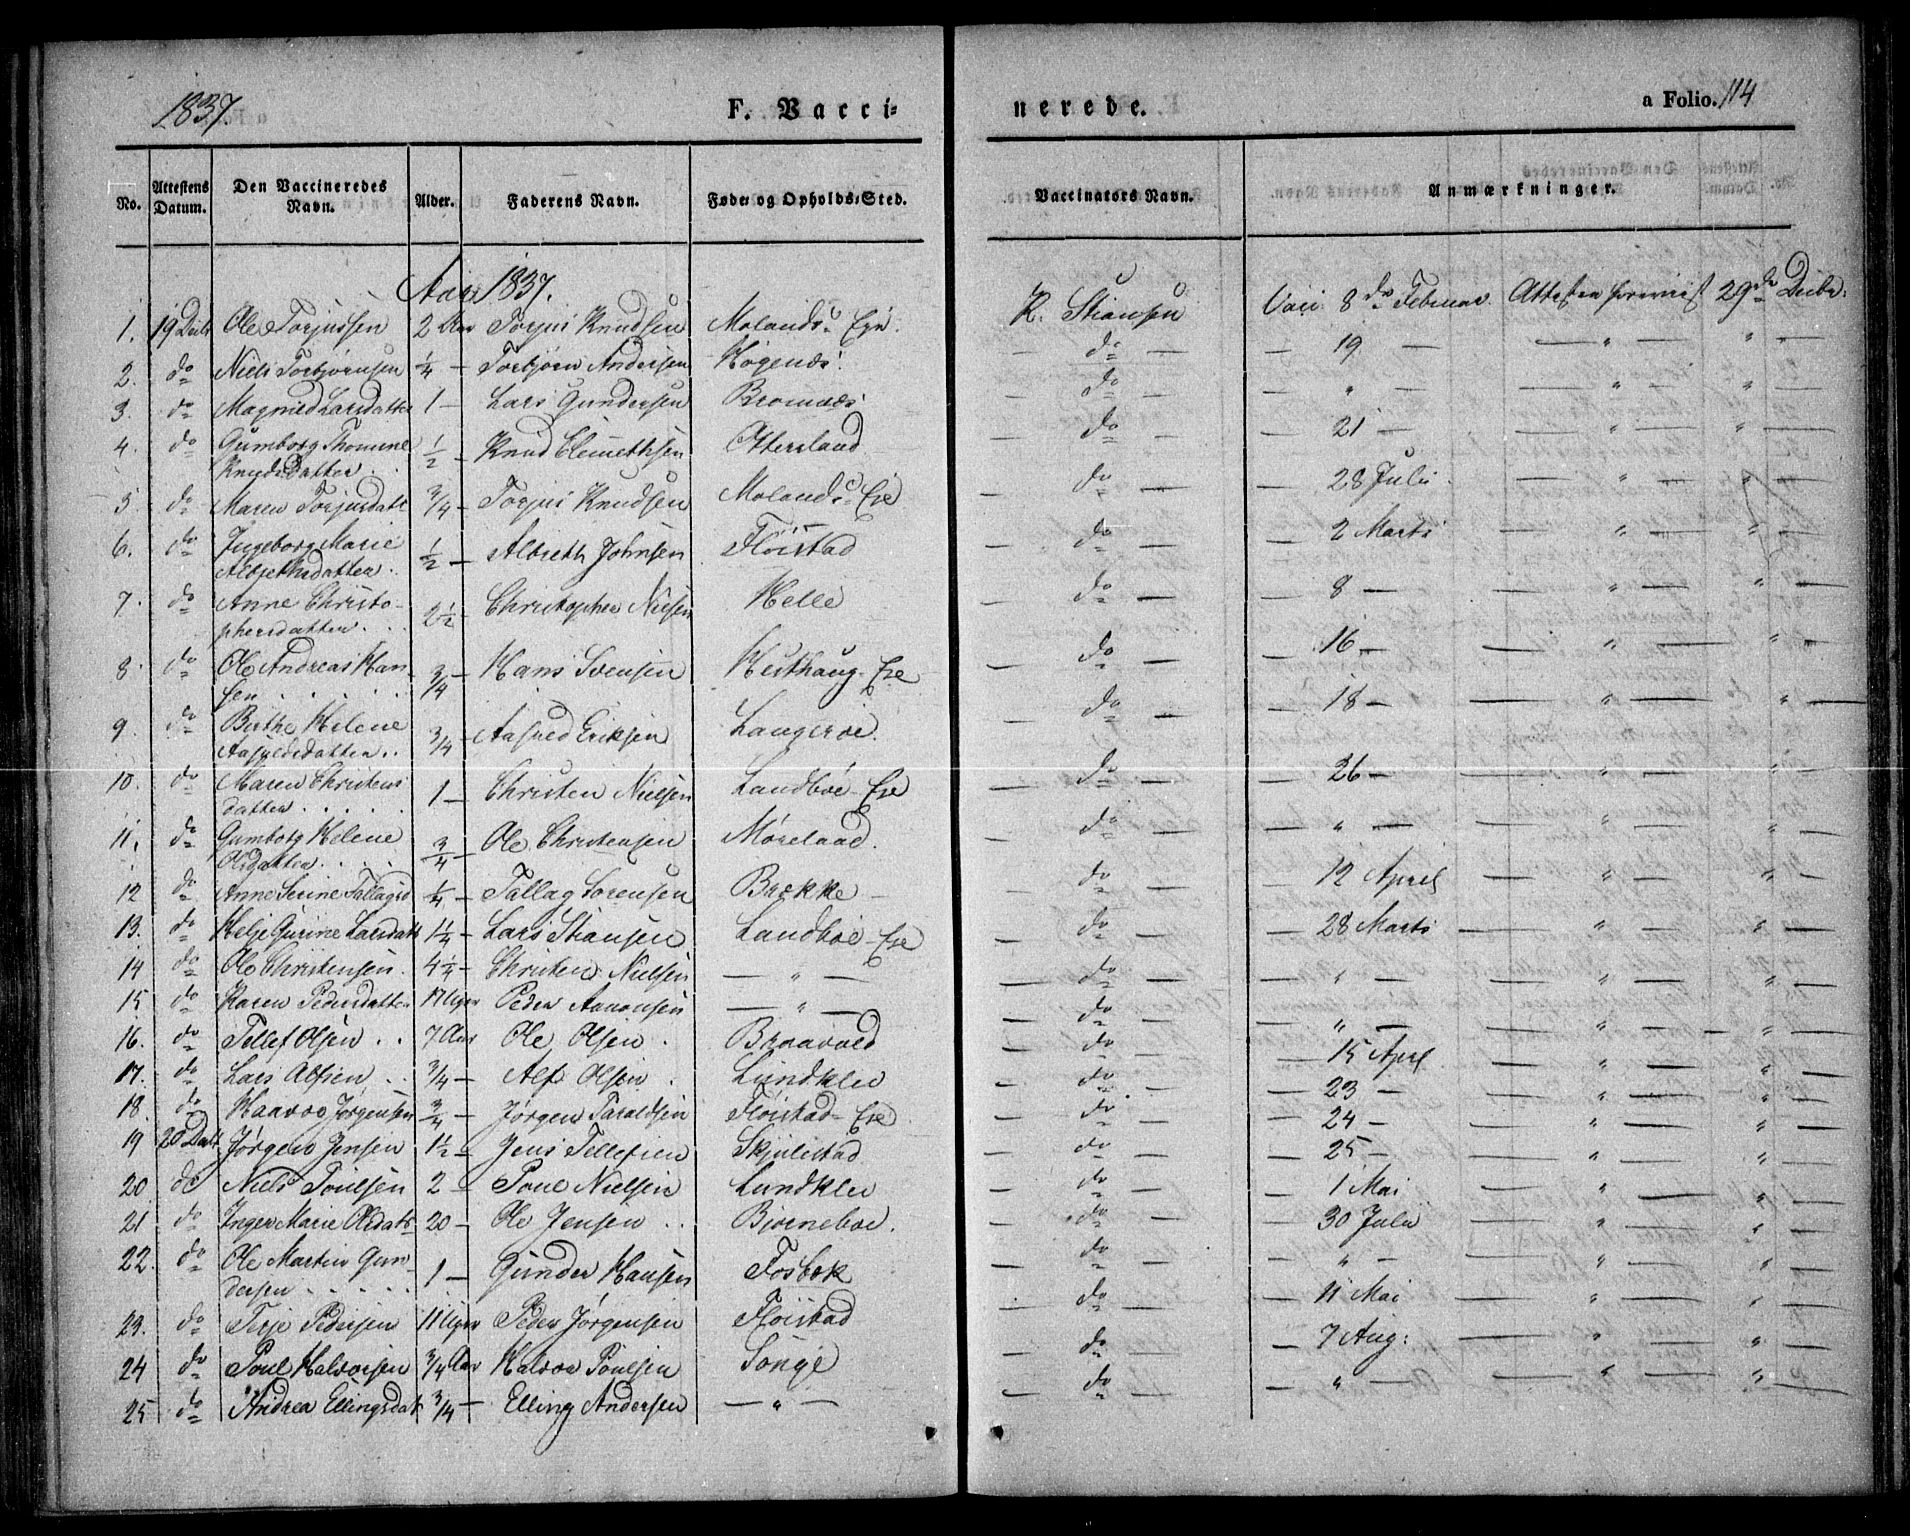 1837.
F. Vacci-
nerede.
a Folio. 114
No. Attestens Datum. Den Vaccineredes Navn. Alder. Faderens Navn. Føde- og Opholds-Sted. Vaccinators Navn. Anmærkninger.
Aar 1837.
1. 19 Decbr Ole Torjussen 2 Aar Torjus Knudsen Molands Eje. K. Stiansen Vacc. 8de Februar. Attesten forevist 29de Decbr:
2. do Niels Torbjørnsen 1/4 — Torbjørn Andersen Høgenæs. — do — — 19 — — " — " —
3. do Magnild Larsdatter 1 — Lars Gundersen Bromnæs — do — — " — — " — " —
4. do Gumborg Thomine
Knudsdatter . . 1/2 — Knud Clemethsen Ottersland — do — — 21 — — " — " —
5 do Maren Torjusdatt 3/4 — Torjus Knudsen Molands Eje — do — — 28 Juli — " — " —
6. do Ingeborg Marie
Albrethsdatter . 1/2 — Albreth Johnsen Fløistad — do — — 2 Marts — " — " —
7. do Anne Christo-
phersdatter . . . 2 1/2 — Christopher Nielsen Helle — do — — 8 — — " — " —
8. do Ole Andreas Han-
sen . . . . . 3/4 — Hans Svensen Hesthaug-Eje — do — — 16 — — " — " —
9 do Birthe Helene
Aasuldsdatter . . 3/4 — Aasuld Eriksen Langerøe. — do — — 18 — — " — " —
10. do Maren Christens
datter . . . . . 1 — Christen Nielsen Landbøe-Eje — do — — 26 — — " — " —
11. do Gumborg Helene
Olsdatter . . . . 3/4 — Ole Christensen Mørelaad. — do — — " — — " — " —
12 do Anne Serine Tallagsd 1/4 — Tallag Sorensen Brekke — — do — — 12 April — " — " —
13. do Helje Gurine Larsdatt 1 1/4 — Lars Stiansen Landbøe-Eje — do — — 28 Marts — " — " —
14 do Ole Christensen. 4 1/4 — Christen Nielsen — " — — do — — " — — " — " —
15 do Karen Pedersdatter 17 Uger Peder Aanonsen — " — — do — — " — — " — " —
16. do Tellef Olsen . . 7 Aar Ole Olsen . Braavold — do — — 15 April — " — " —
17. do Lars Alfsen . . 3/4 — Alf Olsen . Lundklev — do — — 23 — — " — " —
18. do Haavoe Jørgensen 3/4 — Jørgen Taraldsen Fløistad-Eje — do — — 24 — — " — " —
19 20 Decbr Jørgen Jensen 1 1/2 — Jens Tellefsen Skjulestad — do — — 25 — — " — " —
20. do Niels Poulsen 2 — Poul Nielsen Lundklev — do — — 1 Mai — " — " —
21 do Inger Marie Olsdatt 20 — Ole Jensen . . Bjorneboe. — do — — 30 Juli — " — " —
22. do Ole Martin Gun-
dersen . . . . . 1 — Gunder Hansen Fosbek — do — — " — — " — " —
23. do Terje Pedersen 11 Uger Peder Jørgensen Fløistad — do — — 11 Mai — " — " —
24 do Poul Halvorsen 3/4 Aar Halvor Poulsen Songe — do — — 7 Aug: — " — " —
25 do Andrea Ellingsdatt 3/4 — Elling Andersen — " — — do — — " — — " — " —